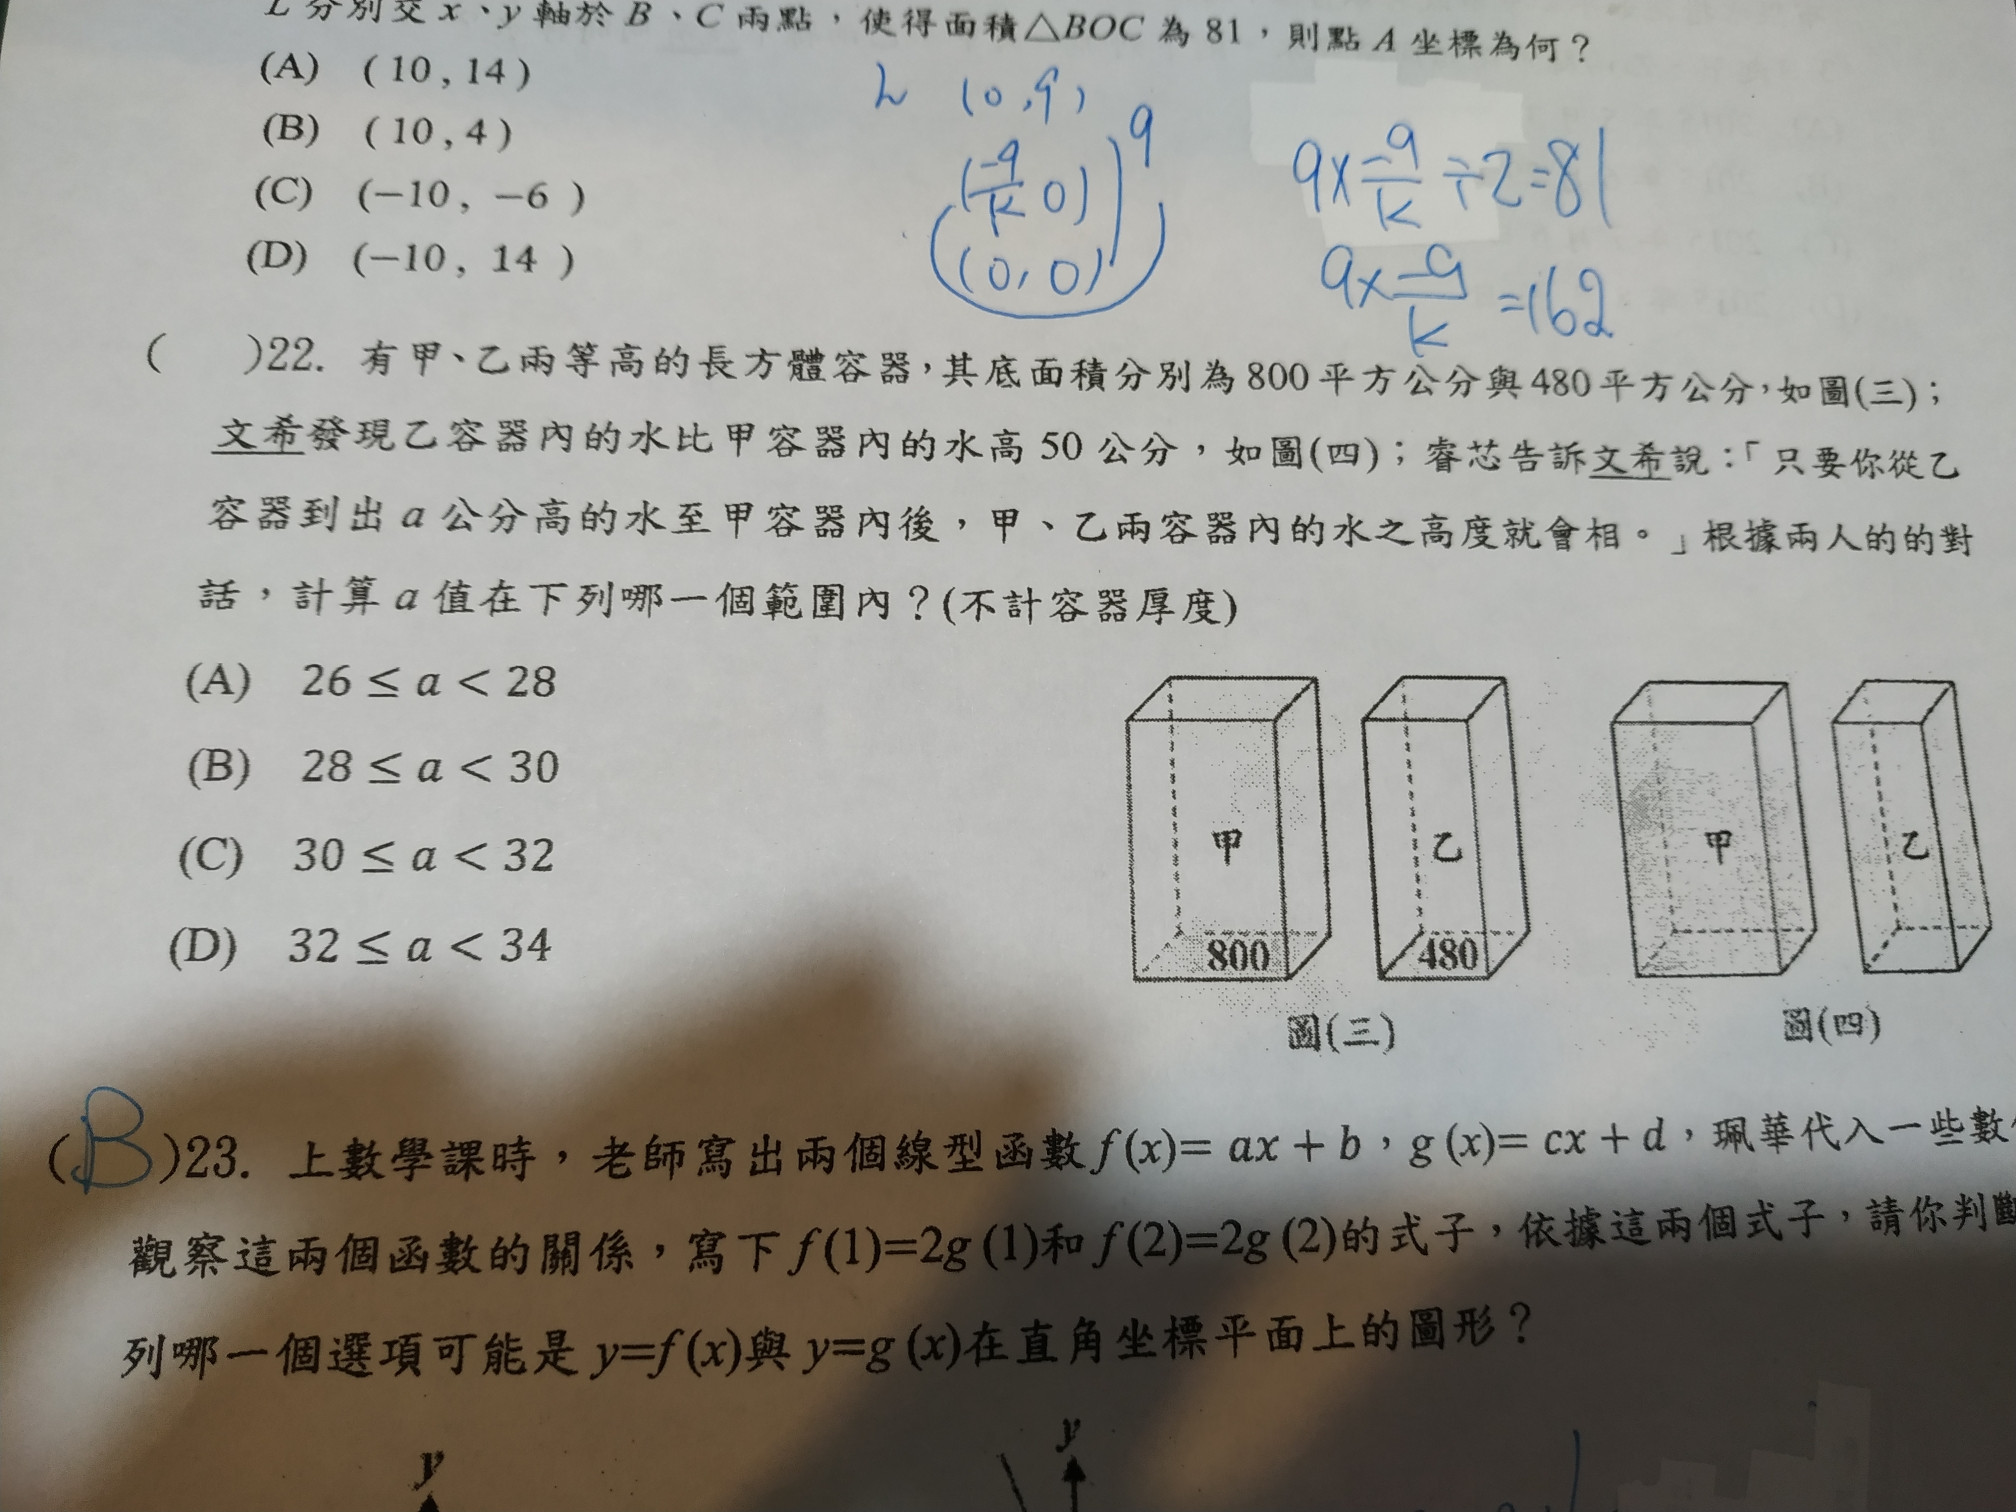 L 分別交 x、y 軸於 B、C 兩點，使得面積△BOC 為 81，則點 A 坐標為何？
(A) (10,14)
(B) (10,4)
(C) (−10, −6 )
(D) (−10, 14 )
L (0,9)
(-9/k 0) 9
(0,0)
9×-9/k÷2=81
9×-9/k=162
( )22. 有甲、乙兩等高的長方體容器，其底面積分別為800平方公分與480平方公分，如圖(三)；
文希發現乙容器內的水比甲容器內的水高 50 公分，如圖(四)；睿芯告訴文希說：「只要你從乙
容器到出 a 公分高的水至甲容器內後，甲、乙兩容器內的水之高度就會相。」根據兩人的的對
話，計算 a 值在下列哪一個範圍內？(不計容器厚度)
(A) 26 ≤ a < 28
(B) 28 ≤ a < 30
(C) 30 ≤ a < 32
(D) 32 ≤ a < 34
甲 乙 甲 乙
800 480
圖(三) 圖(四)
(B)23. 上數學課時，老師寫出兩個線型函數 f (x)= ax + b，g (x)= cx + d，珮華代入一些數
觀察這兩個函數的關係，寫下 f (1)=2g (1)和 f (2)=2g (2)的式子，依據這兩個式子，請你判斷
列哪一個選項可能是 y=f (x)與 y=g (x)在直角坐標平面上的圖形？
y y